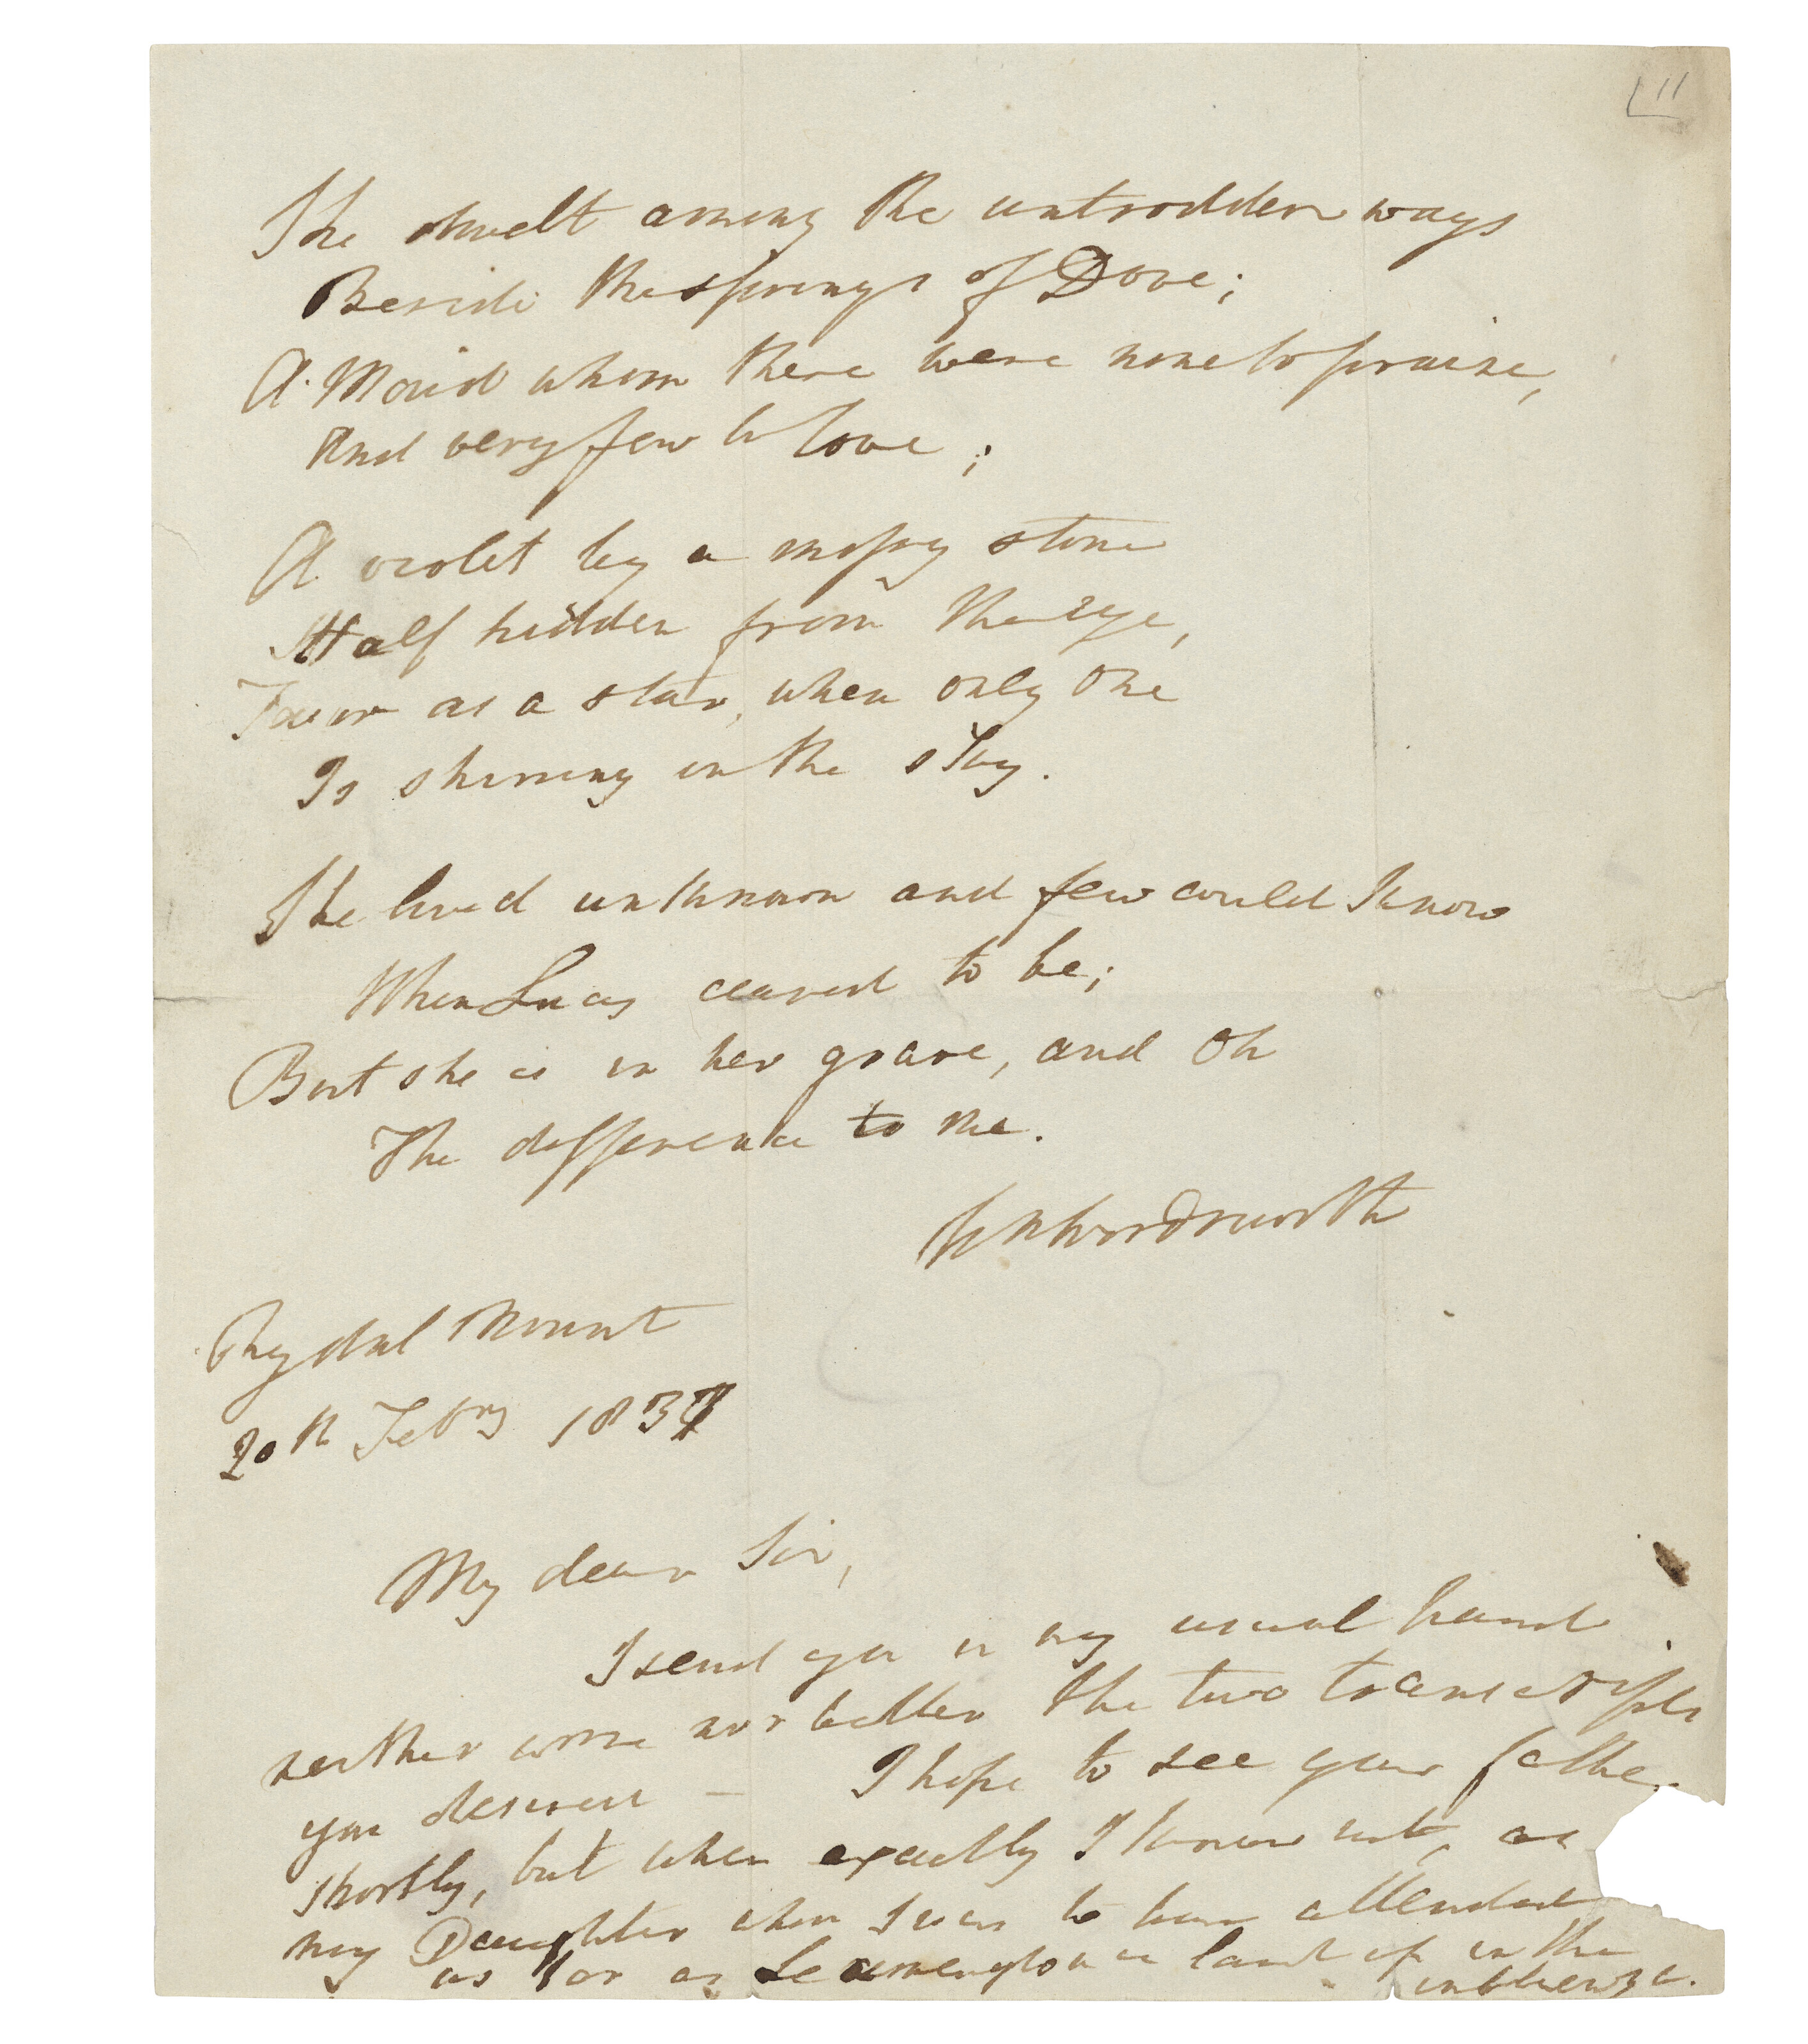 11
She dwelt among the untrodden ways
Beside the springs of Dove;
A Maid whom there were none to praise,
And very few to love;
A violet by a mossy stone
Half hidden from the eye,
Fair as a star, when only one
Is shining in the sky.
She lived unknown and few could know
When Lucy ceased to be;
But she is in her grave, and Oh
The difference to me.
Wm Wordsworth
Rydal Mount
20th Febry 1837
My dear Sir,
I send you in my usual hand
neither worse nor better the two transcripts
you desired — I hope to see your father
shortly, but when exactly I know not, as
my Daughter whom I was to have attended
as far as Leamington is laid up in the
influenza.